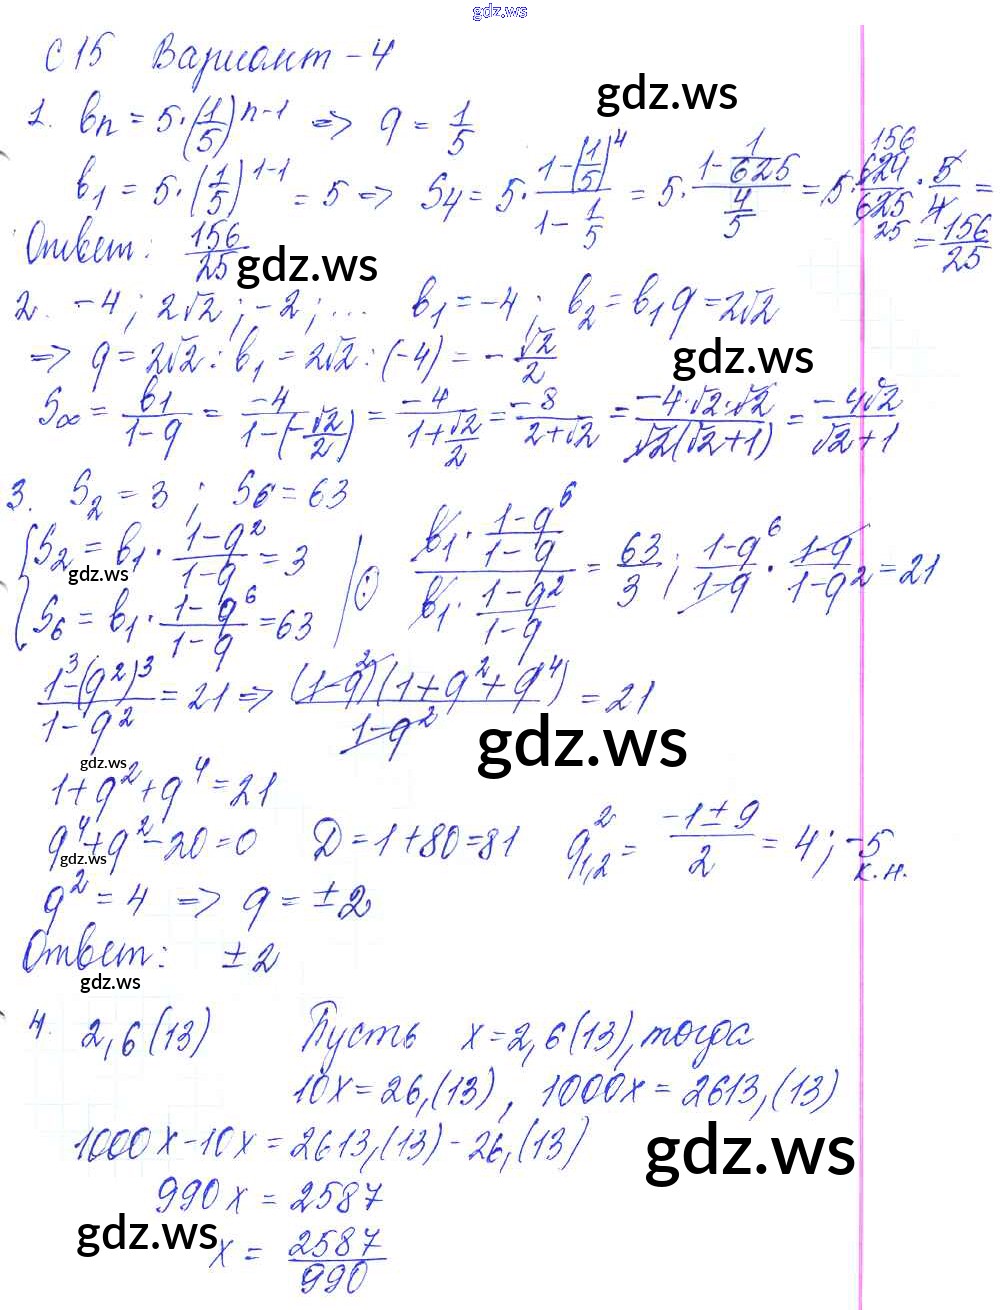 gdz.ws
С 15 Вариант - 4
gdz.ws
1. bₙ = 5·(1/5)^(n-1) => q = 1/5
b₁ = 5·(1/5)^(1-1) = 5 => S₄ = 5 · (1-(1/5)^4)/(1 - 1/5) = 5 · (1 - 1/625)/(4/5) = 5 · 624/625 · 5/4 = 156 25 = 156/25
Ответ: 156/25
gdz.ws
2. -4; 2√2; -2; ... b₁ = -4; b₂ = b₁q = 2√2
=> q = 2√2 : b₁ = 2√2 : (-4) = - √2/2
gdz.ws
S∞ = b₁/(1-q) = -4/(1-(-√2/2)) = -4/(1+√2/2) = -8/(2+√2) = -4·√2·√2/(√2(√2+1)) = -4√2/(√2+1)
3. S₂ = 3; S₆ = 63
{S₂ = b₁ · (1-q²)/(1-q) = 3
gdz.ws
S₆ = b₁ · (1-q⁶)/(1-q) = 63 | : (b₁ · (1-q⁶)/(1-q))/(b₁ · (1-q²)/(1-q)) = 63/3; (1-q⁶)/(1-q) · (1-q)/(1-q²) = 21
(1³-(q²)³)/(1-q²) = 21 => (1-q²)(1+q²+q⁴)/(1-q²) = 21
gdz.ws
gdz.ws
1+q²+q⁴ = 21
q⁴+q²-20 = 0 D = 1+80 = 81 q²₁,₂ = (-1±9)/2 = 4; -5
к.н.
gdz.ws
q² = 4 => q = ±2
Ответ: ±2
gdz.ws
4. 2,6(13) Пусть x = 2,6(13), тогда
10x = 26,(13), 1000x = 2613,(13)
1000x - 10x = 2613,(13) - 26,(13)
gdz.ws
990x = 2587
gdz.ws
x = 2587/990